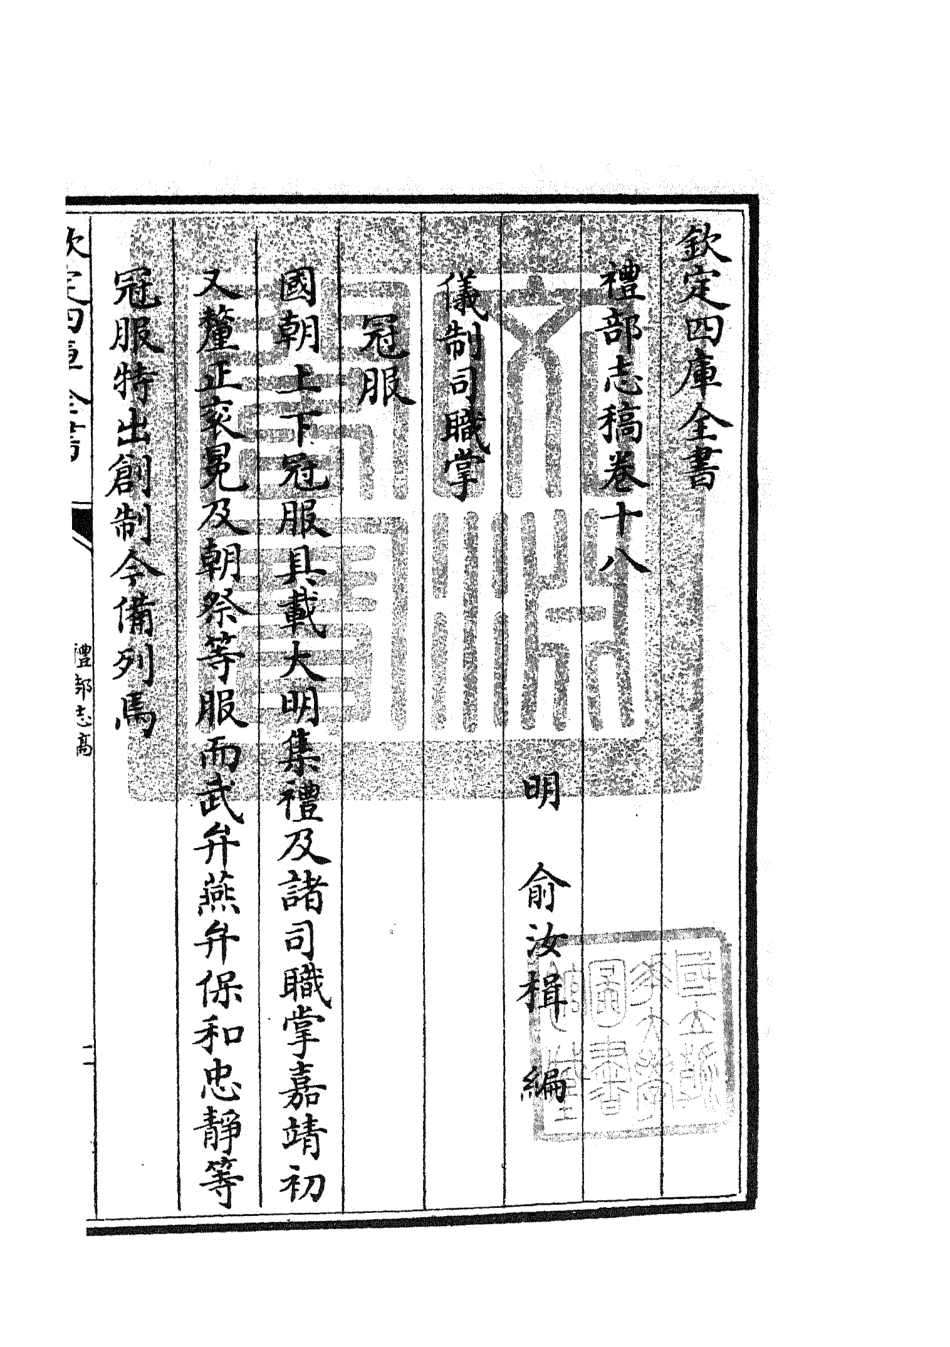 欽定四庫全書
禮部志稿卷十八
明　俞汝楫　編
儀制司職掌
冠服
國朝上下冠服具載大明集禮及諸司職掌嘉靖初
又釐正衮冕及朝祭等服而武弁燕弁保和忠靜等
冠服特出創制今備列焉
欽定四庫全書
禮部志稿
文淵閣寶